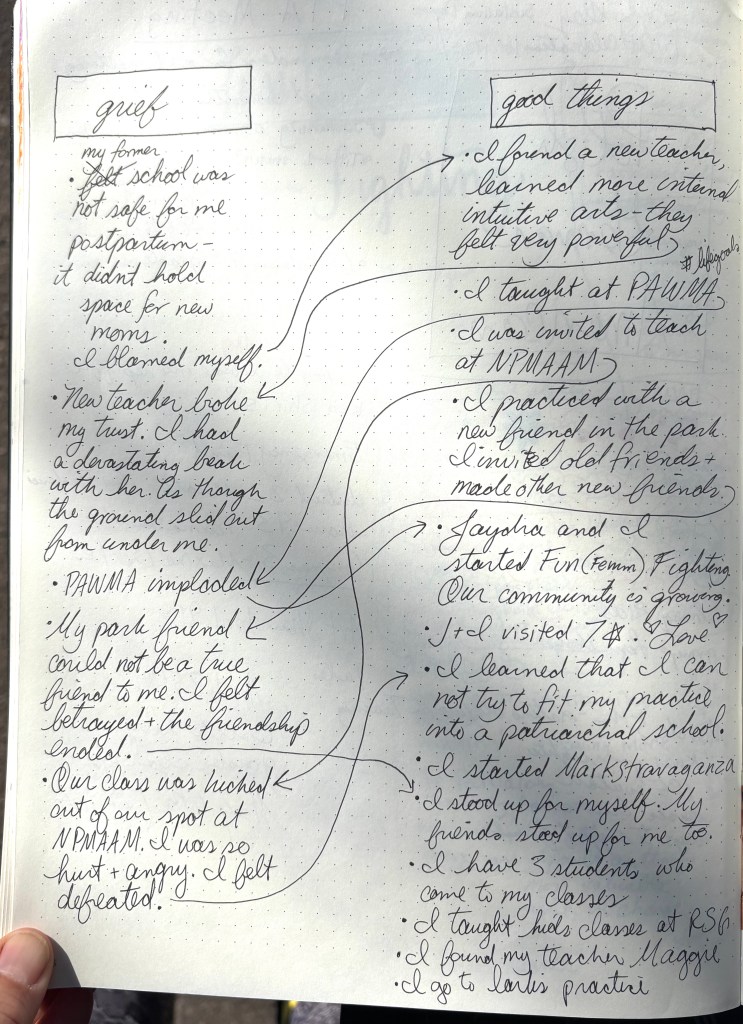 grief
my former
• felt school was
not safe for me
postpartum –
it didn't hold
space for new
moms.
I blamed myself.
• New teacher broke
my trust. I had
a devastating beak
with her. As though
the ground slid out
from under me.
• PAWMA imploded
• My park friend
could not be a true
friend to me. I felt
betrayed + the friendship
ended.
• Our class was kicked
out of our spot at
NPMAAM. I was so
hurt + angry. I felt
defeated.
good things
• I found a new teacher,
learned more internal
intuitive arts – they
felt very powerful
#lifegoals
• I taught at PAWMA
• I was invited to teach
at NPMAAM
• I practiced with a
new friend in the park.
I invited old friends +
made other new friends.
• Jaydra and I
started Fun (Femm) Fighting
Our community is growing.
• J + I visited 7☆. ♡Love♡
• I learned that I can
not try to fit my practice
into a patriarchal school.
• I started Markstravaganza
• I stood up for myself. My
friends stood up for me too.
• I have 3 students who
come to my classes
• I taught kids classes at RSG
• I found my teacher Maggie
• I go to larks practice